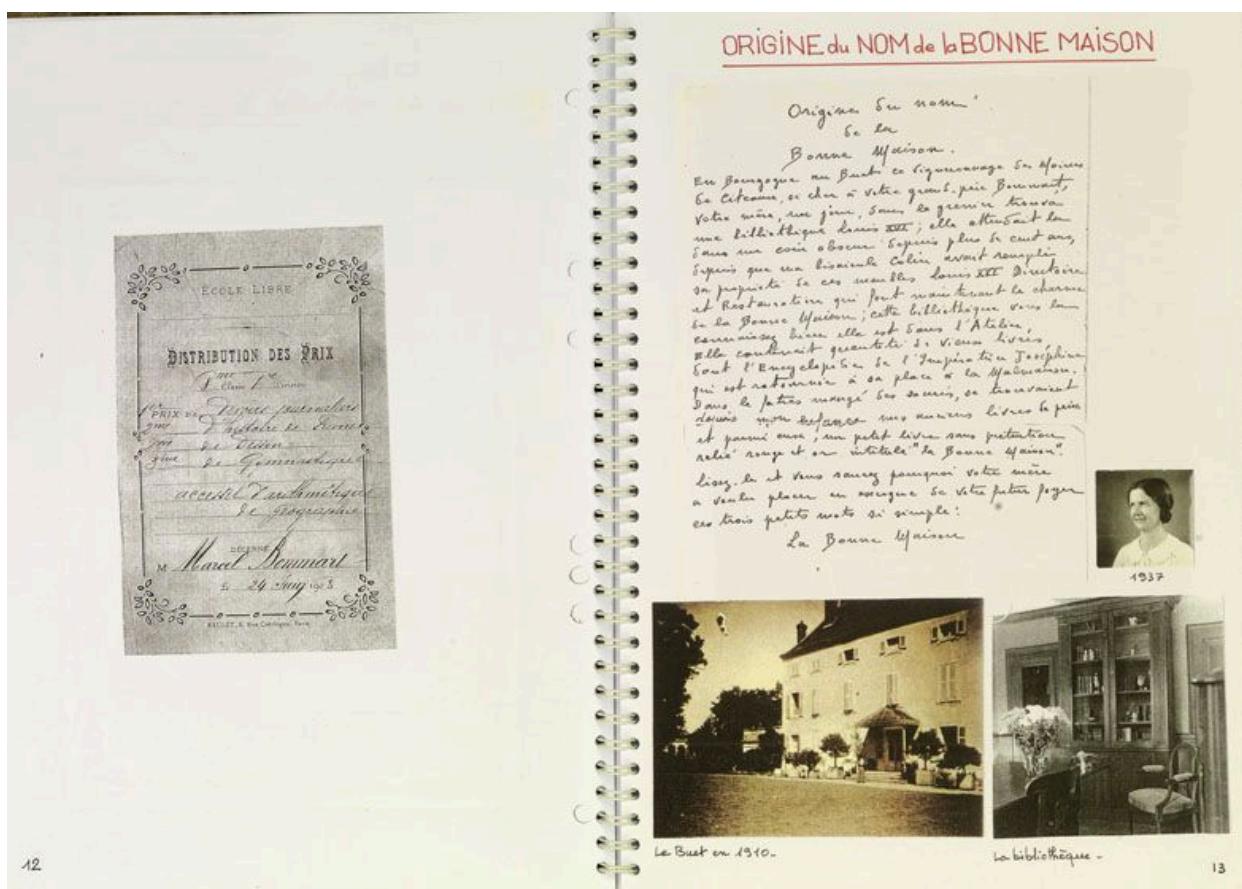 ÉCOLE LIBRE
DISTRIBUTION DES PRIX
Classe
PRIX DE Devoirs journaliers
2me d'histoire de
de Dessin
2me de Gymnastique
accessit d'arithmétique
de géographie
DÉCERNÉ
M Marcel Bommart
24 Juin
12
ORIGINE du NOM de la BONNE MAISON
Origine du nom
de la
Bonne Maison.
En Bourgogne au Buet ce vigneronnage des Moines
de Citeaux, si cher à votre grand-père Bommart,
votre mère, un jour, dans le grenier trouva
une bibliothèque Louis XVI ; elle attendait là
dans un coin obscur depuis plus de cent ans,
depuis que ma bisaïeule Colin avait remplie
sa propriété de ces meubles Louis XVI Directoire
et Restauration qui font maintenant le charme
de la Bonne Maison ; cette bibliothèque vous la
connaissez bien elle est dans l'Atelier,
elle contenait quantité de vieux livres,
dont l'Encyclopédie de l'Impératrice Joséphine
qui est retournée à sa place à la Malmaison.
Dans le fatras mangé des souris, se trouvaient
depuis mon enfance mes anciens livres de prix
et parmi eux, un petit livre sans prétention
relié rouge et or intitulé "la Bonne Maison".
Lisez-le et vous saurez pourquoi votre mère
a voulu placer en exergue de votre futur foyer
ces trois petits mots si simple :
La Bonne Maison
1937
Le Buet en 1910_
La bibliothèque _
13